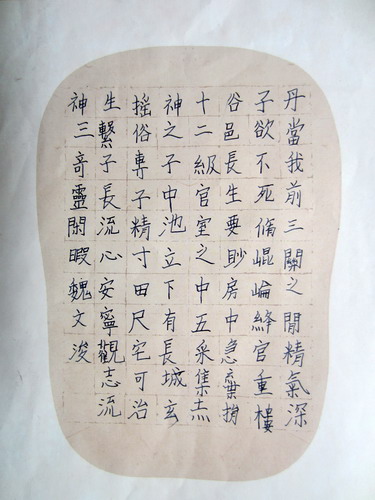 丹當我前三關之間精氣深
子欲不死脩崐崘絳官重樓
俗邑長生要眇房中急棄捐
十二級官室之中五采集赤
神之子中池立下有長城玄
搖俗專子精寸田尺宅可治
生繫子長流心安寧觀志流
神三奇靈閑暇魏文浚